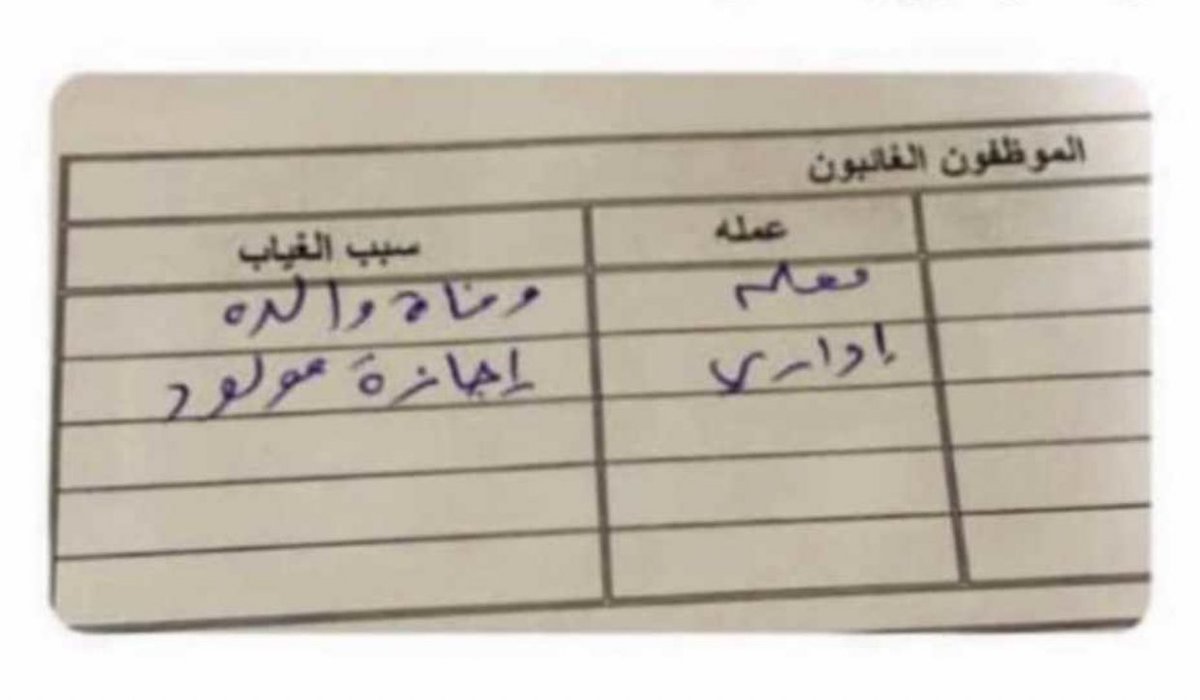 الموظفون الغائبون
عمله سبب الغياب
معلم وفاة والده
إداري إجازة مولود